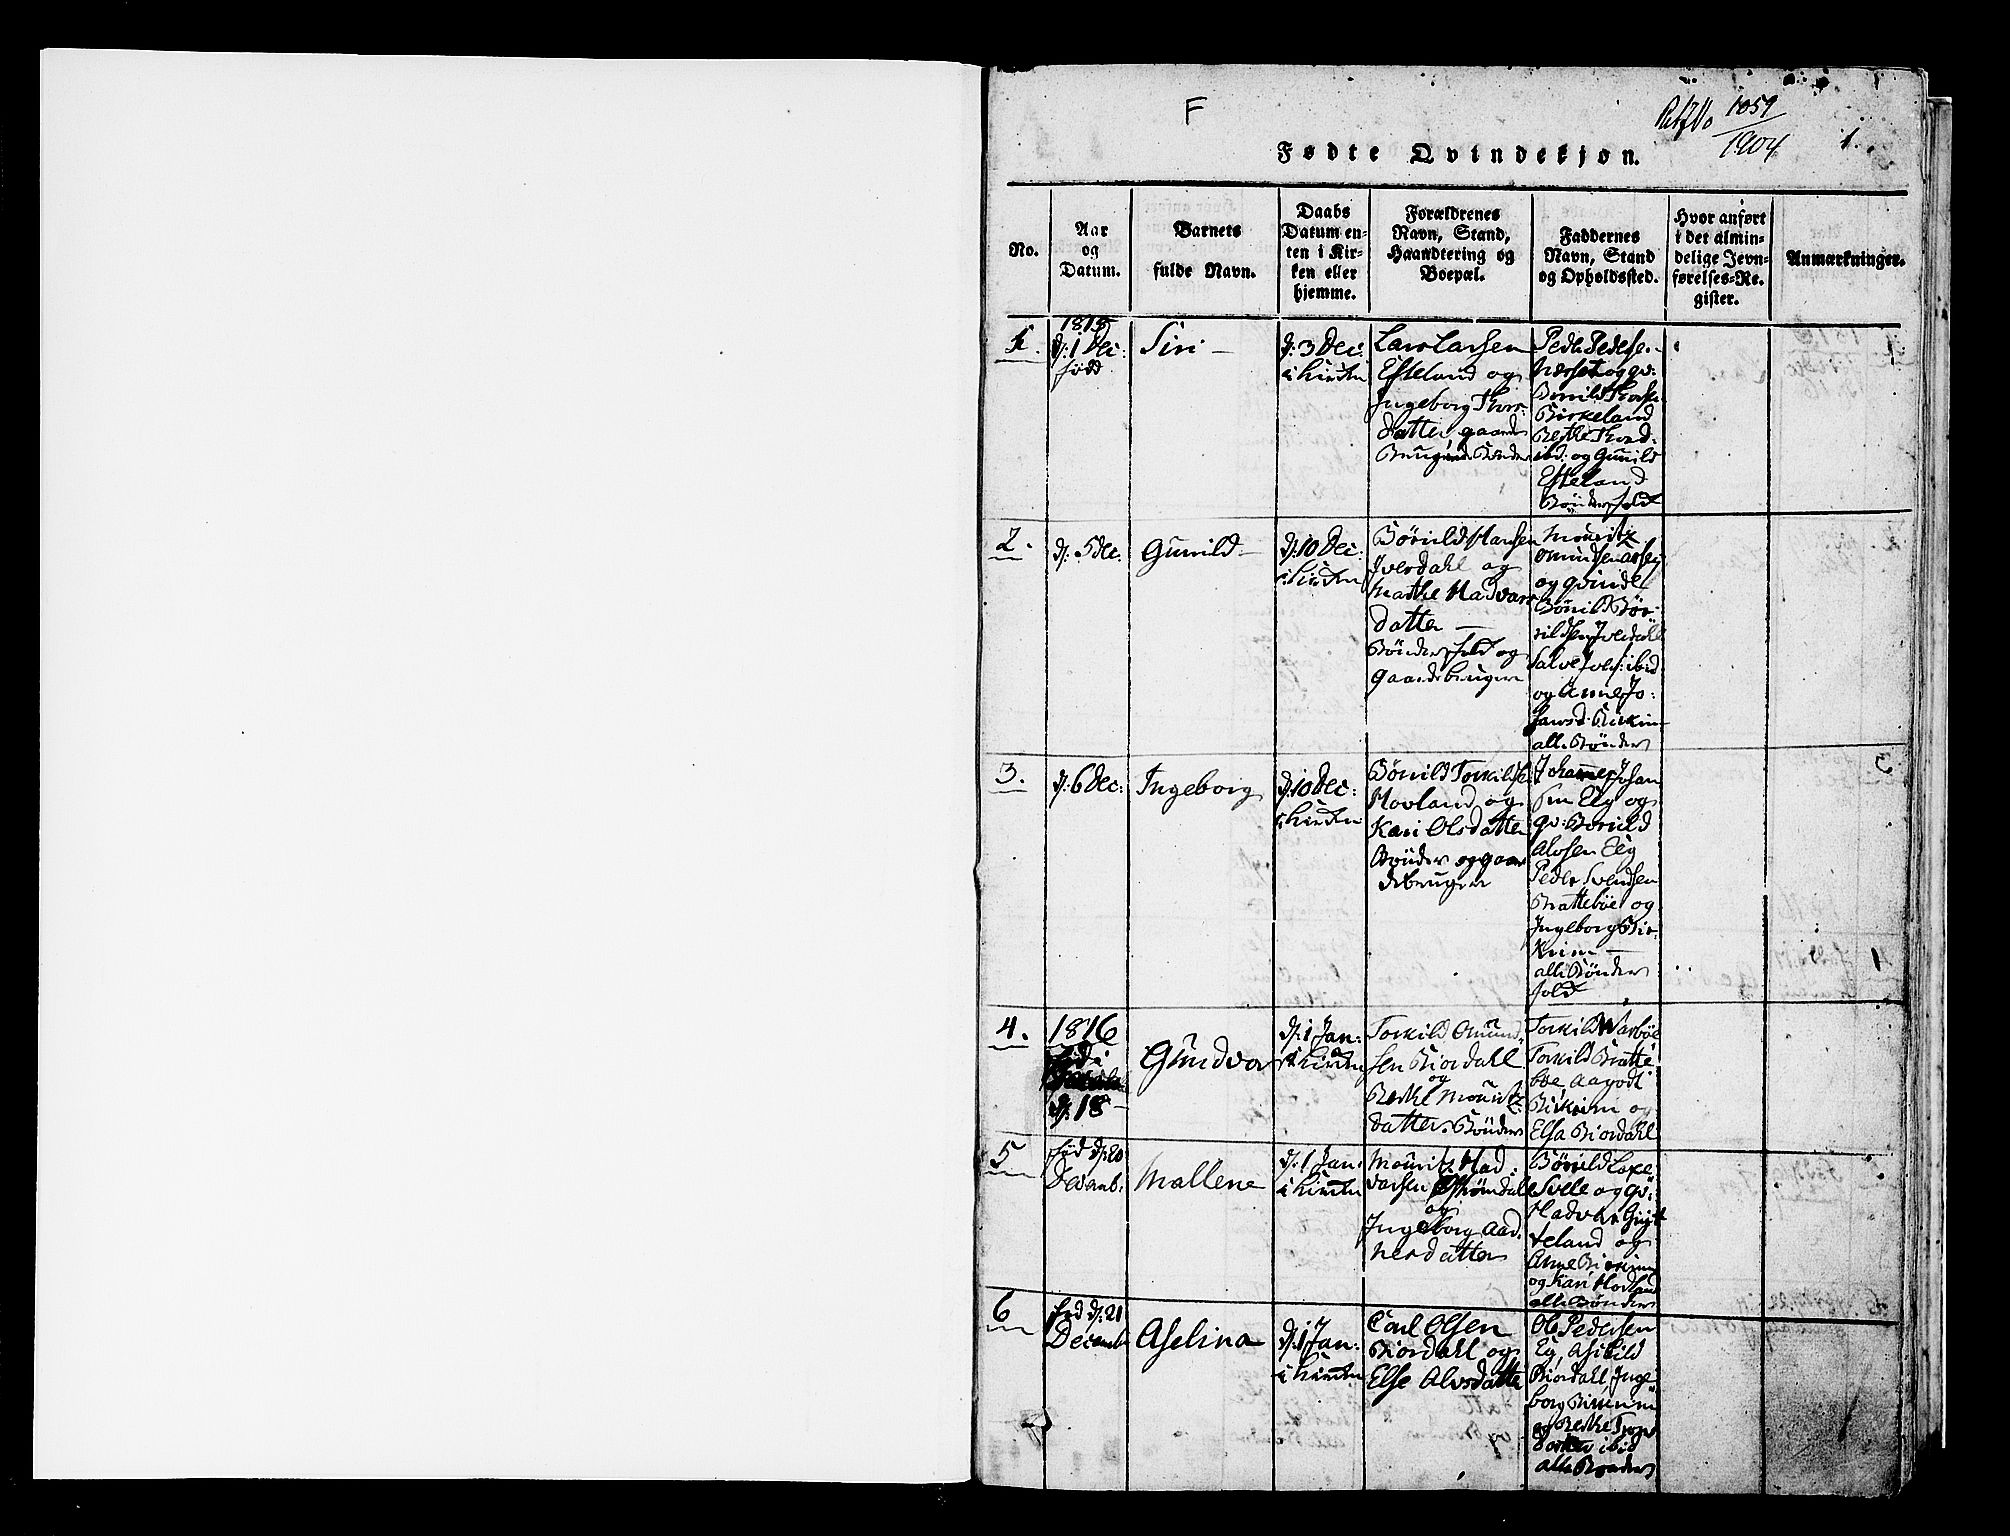 F
1059
1904
1.
Fødte Qvindekjøn.
No.
Aar
og
Datum.
Barnets
fulde Navn.
Daabs
Datum en-
ten i Kir-
ken eller
hjemme.
Forældrenes
Navn, Stand,
Haandtering og
Boepæl.
Faddernes
Navn, Stand
og Opholdssted.
Hvor anført
i det almin-
delige Jevn-
førelses-Re-
gister.
Anmærkninger.
1.
1815
d: 1 Dec:
född
Siri
d: 3 Dec
i Kirken
Lars Larsen
Efteland og
Ingeborg Thor:
datter, gaards
Bönder
Peder Pedersen
og qv:
Birkeland
Berthe
ibd: og Gunild
Efteland
Bönderfolk
2.
d: 5 dec:
Gunild
d: 10 Dec:
i Kirken
Börild Hansen
Iverdahl og
Marthe Hadvars
datter
Bönderfolk og
gaardbrugere
Mouritz
Omundsen
og qvinde
Börild Bör-
ildsen Iverdahl
Salve ibid
og Anne Jo-
hansd: Birkrim
alle Bönder
3.
d: 6 Dec:
Ingeborg
d: 10 Dec:
i Kirken
Börild Torkilds:
Hovland og
Kari Olsdatter
Bönder og gaar
debrugere
Johannes Johan
sen Eeg og
qv: Börild
Alvsen Eeg
Peder Svendsen
Brattebøe og
Ingeborg Bir-
krim
alle Bönder
folk
4.
1816
d: 18
Gundvor
d: 1 Jan:
i Kirken
Torkild Omund-
sen Biordahl
og
Berthe Mouritz
datter. Bönder
Torkild Warbøe
Torkild Bratte
bøe, Aagodt
Birkrim og
Elsa Biordahl
5
fød d: 20
Decemb:
Mallene
d: 1 Jan:
i Kirken
Mouritz Had-
varsen
og
Ingeborg Aad-
nesdatter
Börild Lake-
svele og qv:
Hadvar Gryt
teland og
Anne Birkrim
og Kari Hovland
alle Bönder
6
fød d: 21
Decemb
Aselina
d: 1 Jan:
i Kirken
Carl Olsen
Biordahl og
Else Alvsdatter
Ole Pedersen
Eg, Asikild
Biordahl, Inge
borg Birkrim
og Berthe
ibid
alle Bönder